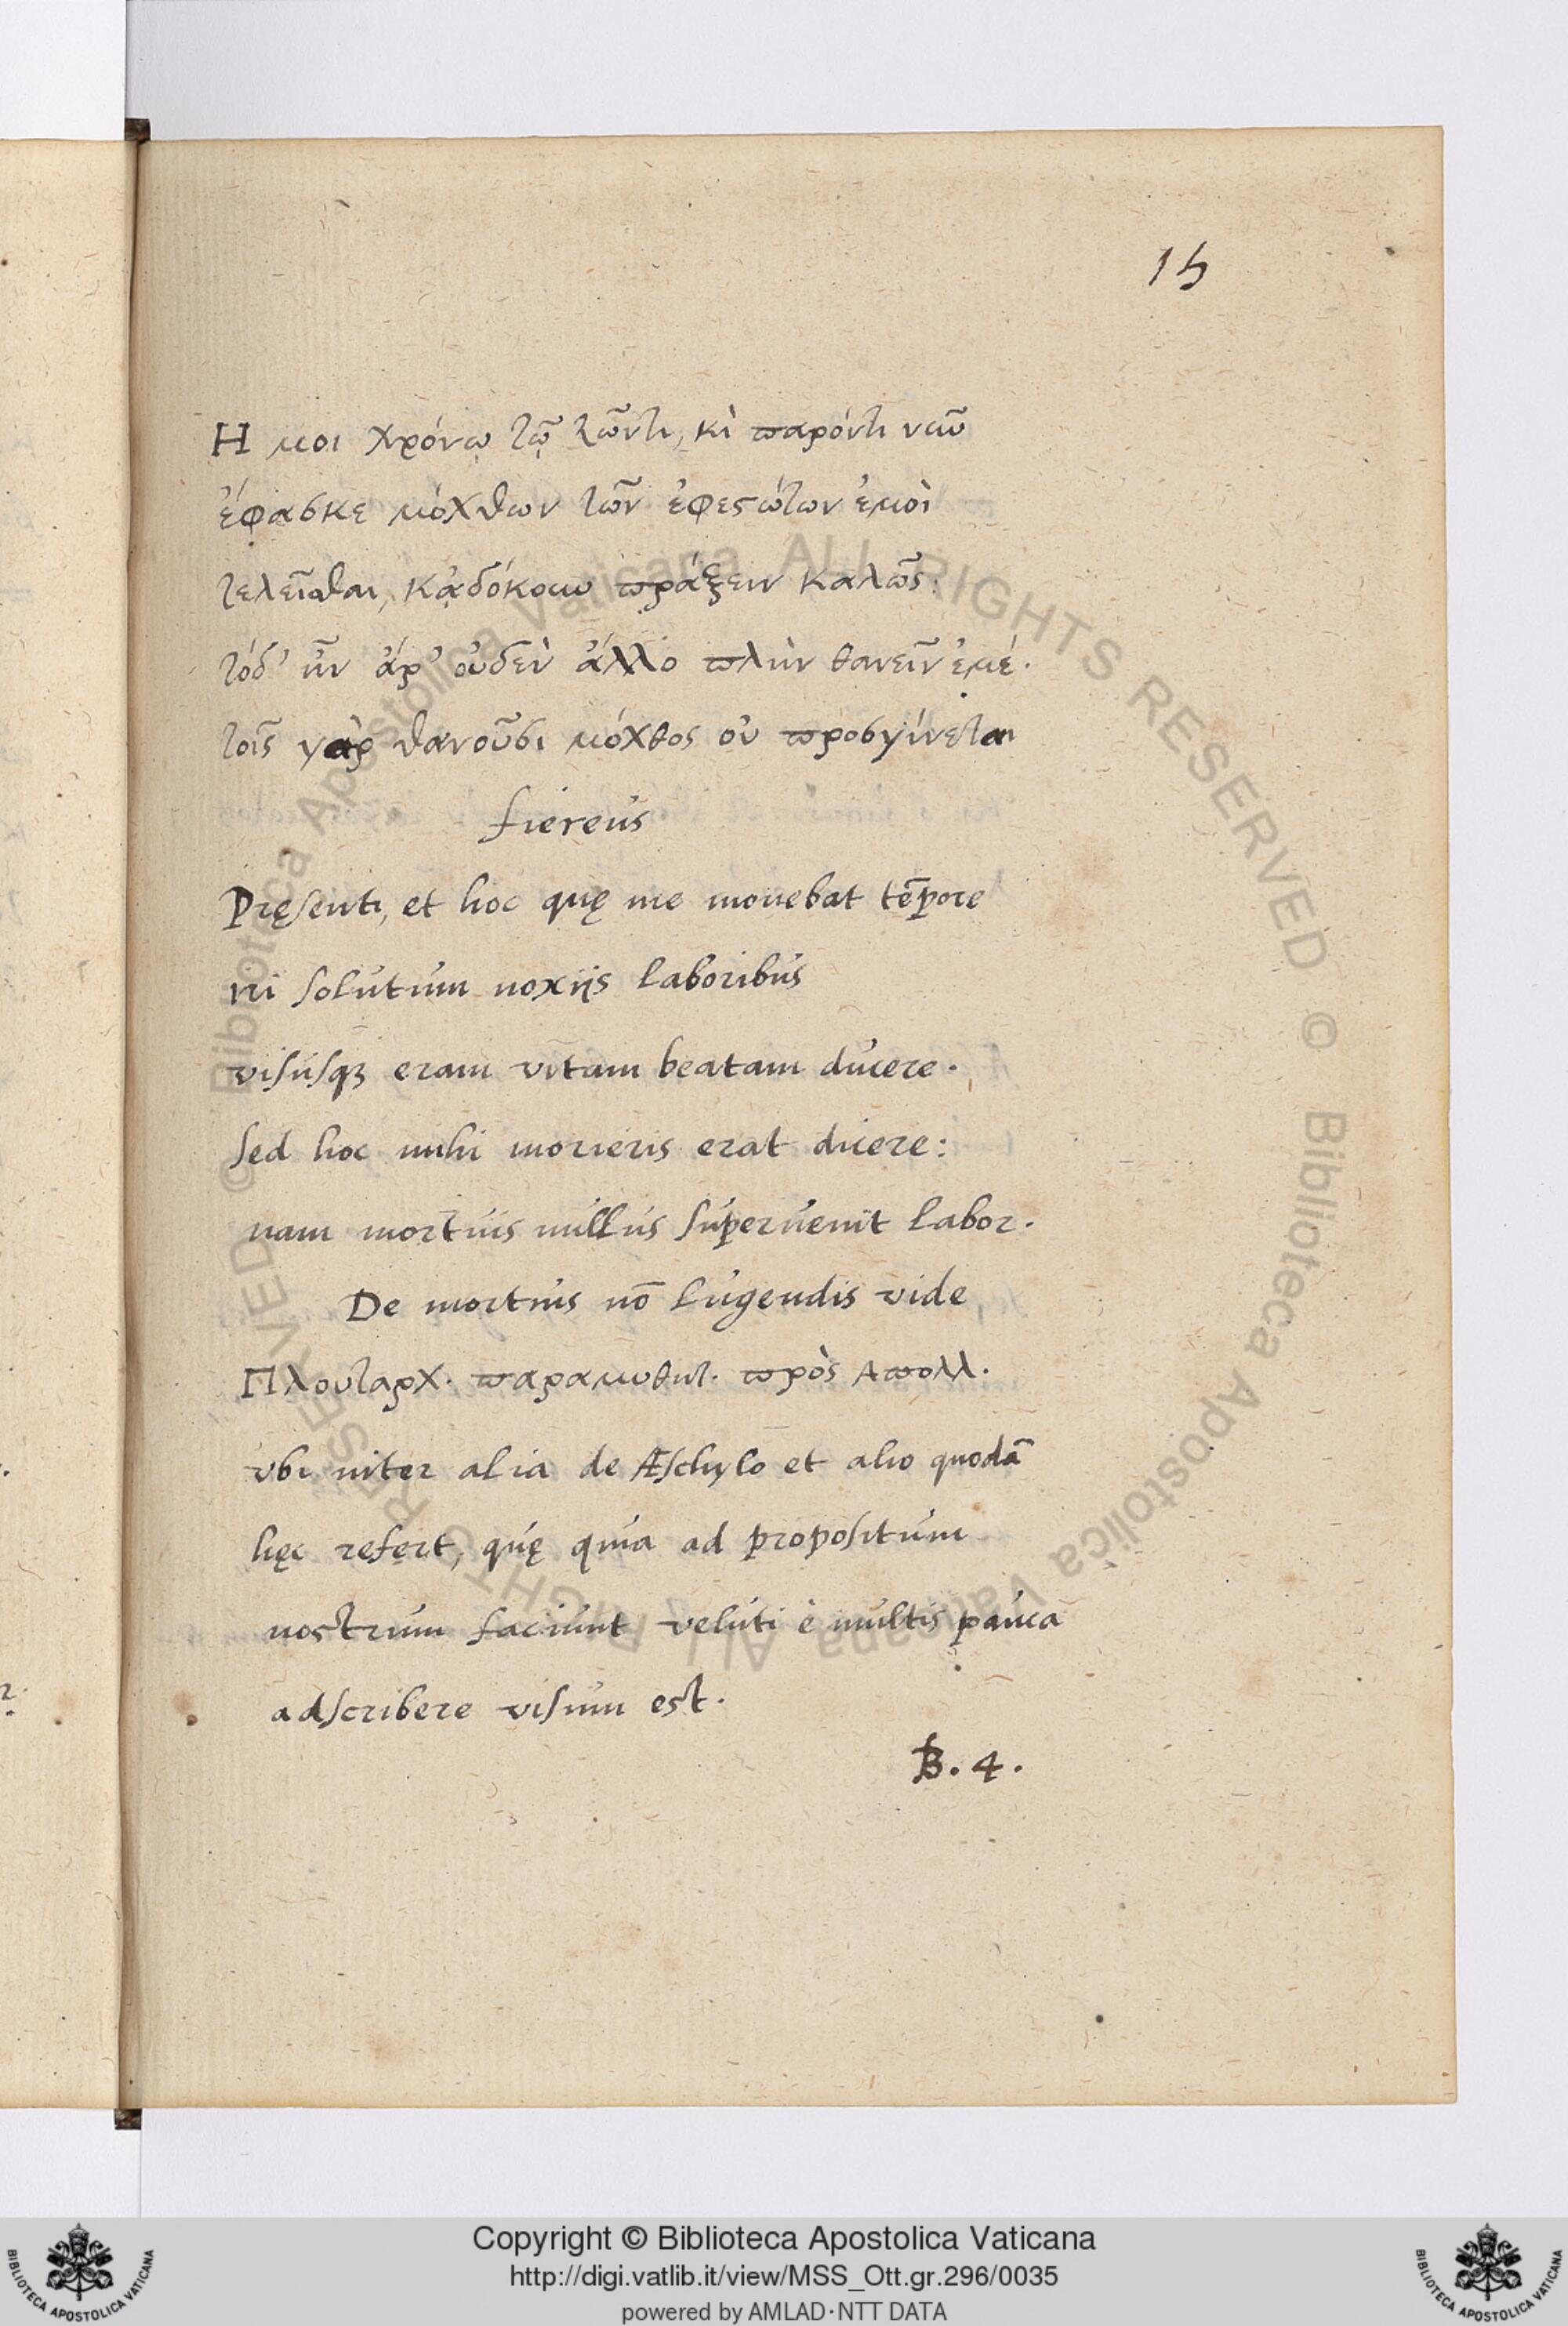 15
Η μοι χρόνῳ τῷ ζῶντι, κὶ παρόντι νιῦ
ἔφασκε μόχθων τῶν ἐφεστώτων ἐμοὶ
τελεῖσθαι, κᾀδόκουν πράξειν καλῶς:
τόδ' ἦν ἄρ' οὐδὲν ἄλλο πλὴν θανεῖν ἐμέ.
τοῖς γὰρ θανοῦσι μόχθος οὐ προσγίνεται
fiereus
Pręsenti, et hoc quę me mouebat tẽpore
ni solutum noxijs laboribus
visusq3 eram vitam beatam ducere.
sed hoc mihi morieris erat dicere:
nam mortuis nullus superuenit labor.
De mortuis nõ lugendis vide
Πλουταρχ. παραμυθητ. πρὸς Απολλ.
vbi inter alia de Æschylo et alio quodã
hęc refert, quę quia ad propositum
nostrum faciunt veluti è multis pauca
adscribere visum est.
B. 4.
Copyright © Biblioteca Apostolica Vaticana
http://digi.vatlib.it/view/MSS_Ott.gr.296/0035
powered by AMLAD·NTT DATA
BIBLIOTECA APOSTOLICA VATICANA
BIBLIOTECA APOSTOLICA VATICANA
© Biblioteca Apostolica Vaticana ALL RIGHTS RESERVED © Biblioteca Apostolica Vaticana ALL RIGHTS RESERVED